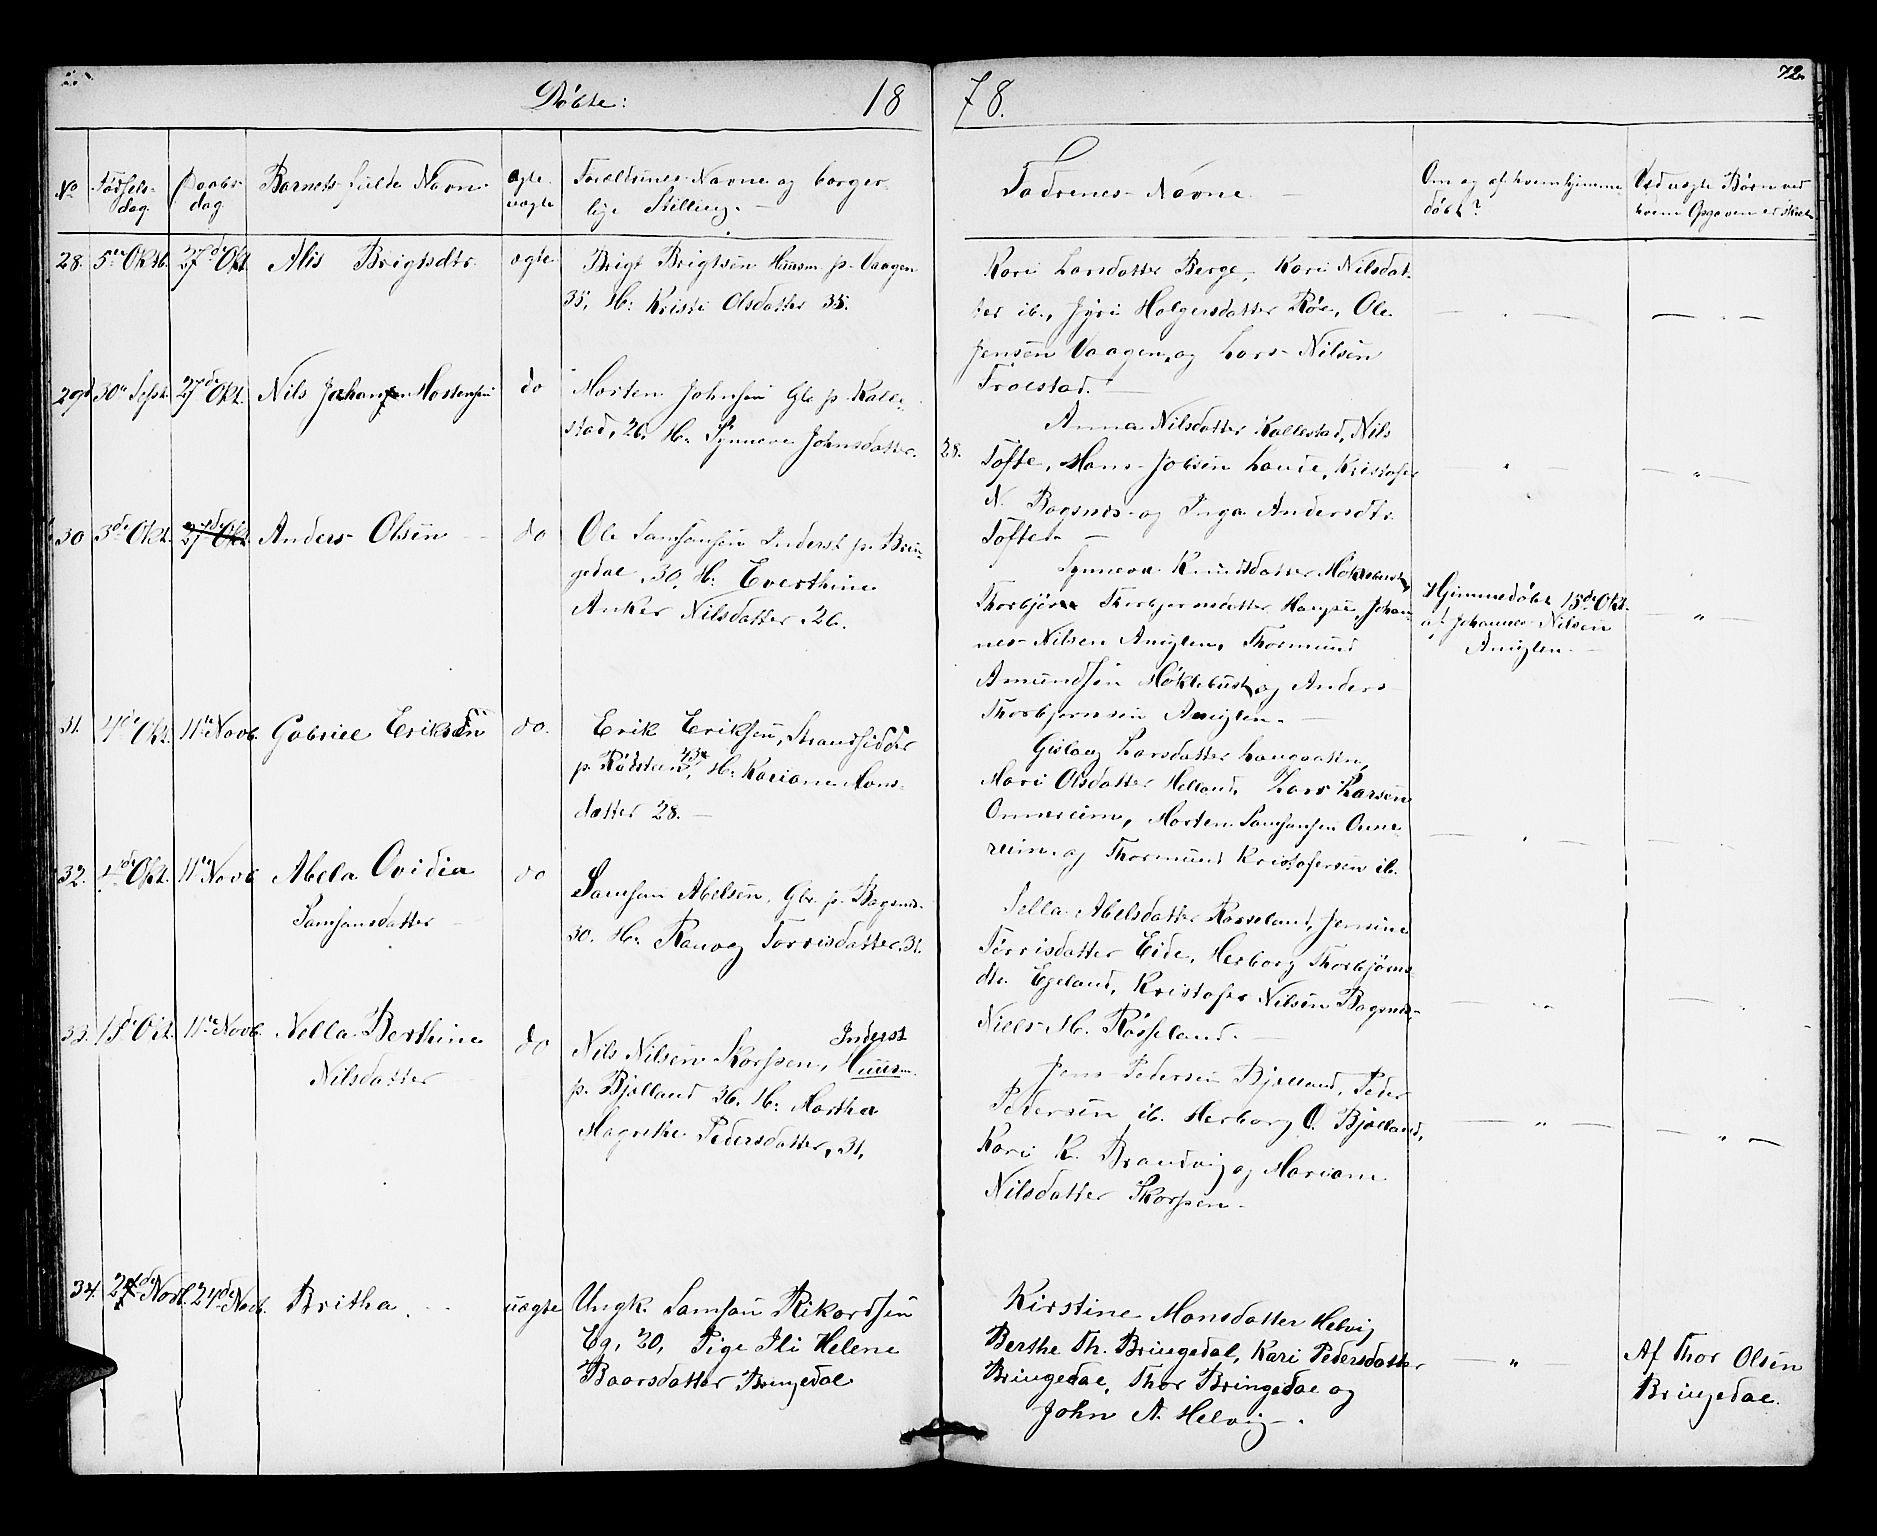 Døbte: 18 78. 72.
No Fødsels- dag. Daabs- dag. Barnets fulde Navn. ægte uægte Forældrenes Navne og borger- lige Stilling. Fadrenes Navne Om og af hvem hjemme døbt? Ved uægte Børn ved hvem Opgaven er skeet
28. 5te Oktb. 27de Okt. Alis Brigtsdtr ægte Brigt Brigtsen Huusm p. Vaagen
35, H: Kristi Olsdatter 35.
Kari Larsdatter Berge, Kari Nilsdat-
ter ib., Jyri Holgersdatter Røe, Ole
Jensen Vaagen, og Lars Nilsen
Troestad.
29 30te Sept. 27de Okt. Nils Johan Mortensen do Morten Johnsen Gbr p. Kalle-
stad, 26. H: Synneve Johnsdatter. 28.
Anna Nilsdatter Kallestad, Nils
Tofte, Hans Jobsen , Kristofer
N. Bagnes og Inga Andersdtr
Tofte.
30 3de Okt. 27de Okt Anders Olsen do Ole Samsonsen Inderst p. Brin-
gedal, 30, H: Everthine
Anker Nilsdatter 26.
Synneva Knudsdatter Møklebust,
Thorbjør Thorbjørnsdatter , Johan-
nes Nilsen Aniglen, Thormund
Amundsen Møklebust og Anders
Thorbjørnsen Aniglen.
Hjemmedøbt 15de Okt.
af Johannes Nilsen
Aniglen.
31. 4de Okt. 11te Novb. Gabriel Eriksen do. Erik Eriksen, Strandsidder
p. Rødsten 43, H: Kariane Mons-
datter 28.
Gislaug Larsdatter ,
Mari Olsdatter Helland, Lars Larsen
Onnereim, Morten Samsonsen Onne-
reim og Thormund Kristofersen ib.
32. 4de Okt. 11te Novb Abela Ovidia
Samsonsdatter do Samson Abelsen, Gbr p. Bagnes
30. H: Ranveg Torrisdatter, 31.
Sella Abelsdatter Røsseland, Jensine
Torrisdatter Eide, Herborg Thorbjørns-
dtr. Egeland, Kristofer Nilsen Bagnes,
Niels M. Røsseland.
33. 15de Okt. 11te Novb. Nella Berthine
Nilsdatter do Nils Nilsen Skorpen, Inderst Huusm.
p. Bjølland 36. H: Martha
Magrethe Pedersdatter, 31,
Jens Pedersen Bjølland, Peder
Pedersen ib. Herborg O. Bjølland,
Kari K. Brandvig og Mariane
Nilsdatter Skorpen.
34. 24de Novb. 24de Novb. Britha. uægte Ungk. Samson Rikardsen
Eg, 30, Pige Ili Helene
Baarsdatter Bringedal
Kirstine Monsdatter Helvig
Berthe Th. Bringedal, Kari Pedersdatter
Bringedal, Thor Bringedal og
John A. Helvig.
Af Thor Olsen
Bringedal.